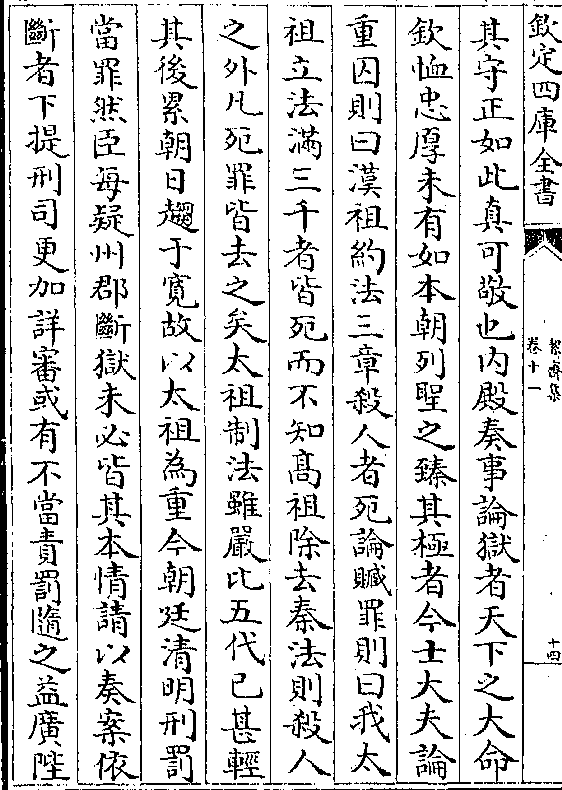 欽定四庫全書
絜齋集
卷十一
十四
其守正如此真可敬也内殿奏事論獄者天下之大命
欽恤忠厚未有如本朝列聖之臻其極者今士大夫論
重囚則曰漢祖約法三章殺人者死論贓罪則曰我太
祖立法滿三千者皆死而不知髙祖除去秦法則殺人
之外凡死罪皆去之矣太祖制法雖嚴比五代已甚輕
其後累朝日趨于寛故以太祖為重今朝廷清明刑罰
當罪然臣每疑州郡斷獄未必皆其本情請以奏案依
斷者下提刑司更加詳審或有不當責罰隨之益廣陛